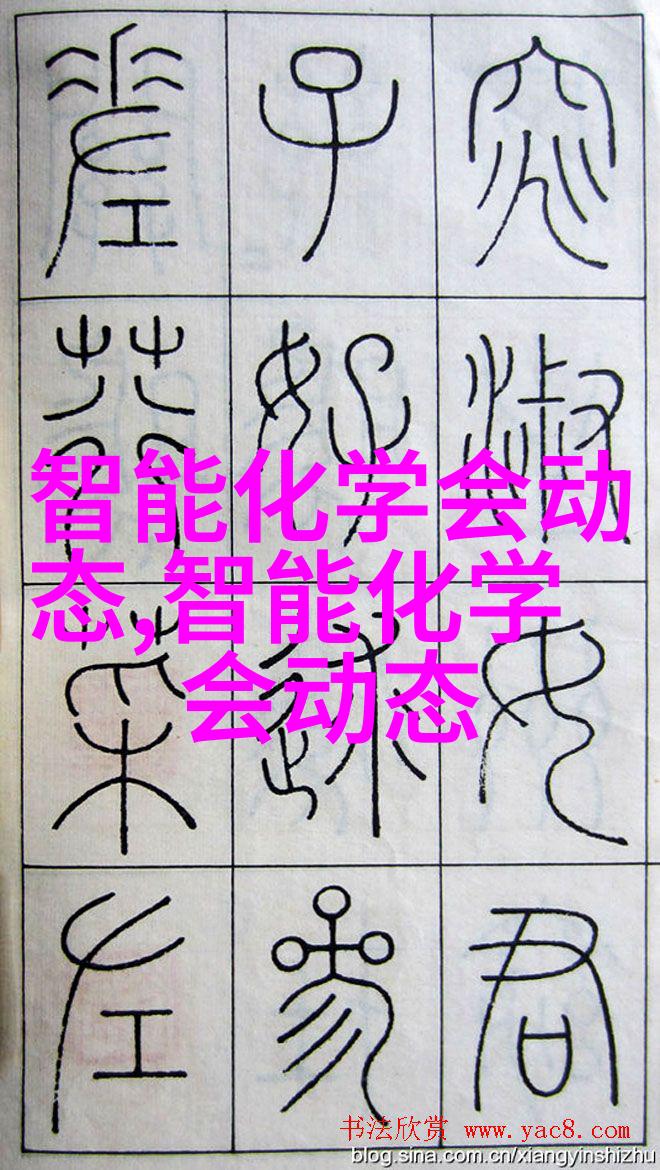 窕淑女君
子好逑參
差荇菜左
智能化学会动
态,智能化学
会动态
书法欣赏 www.yac8.com
blog.sina.com.cn/xiangyinshizhu